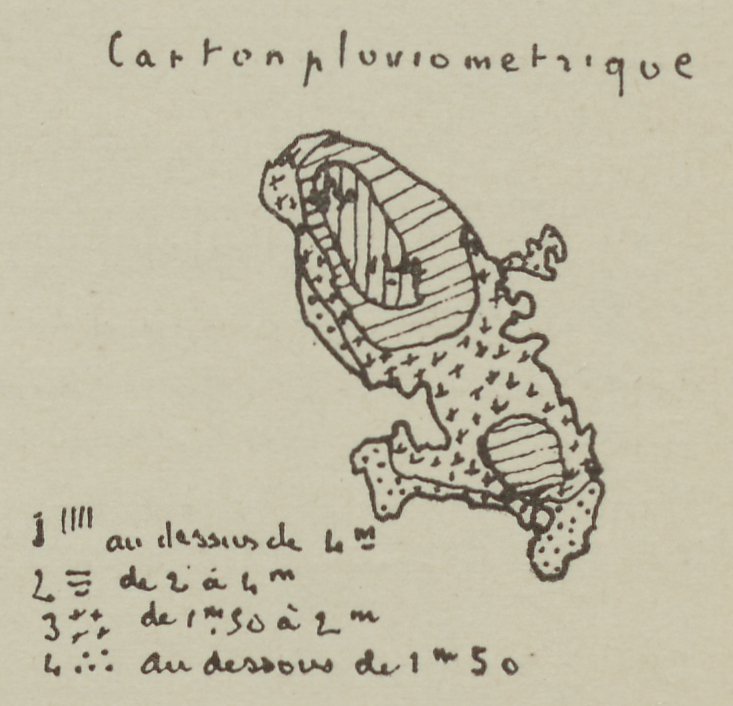 Carton pluviometrique
1 au dessus de 4 m
2 de 2 à 4 m
3 de 1 m 50 à 2 m
4 au dessous de 1 m 50